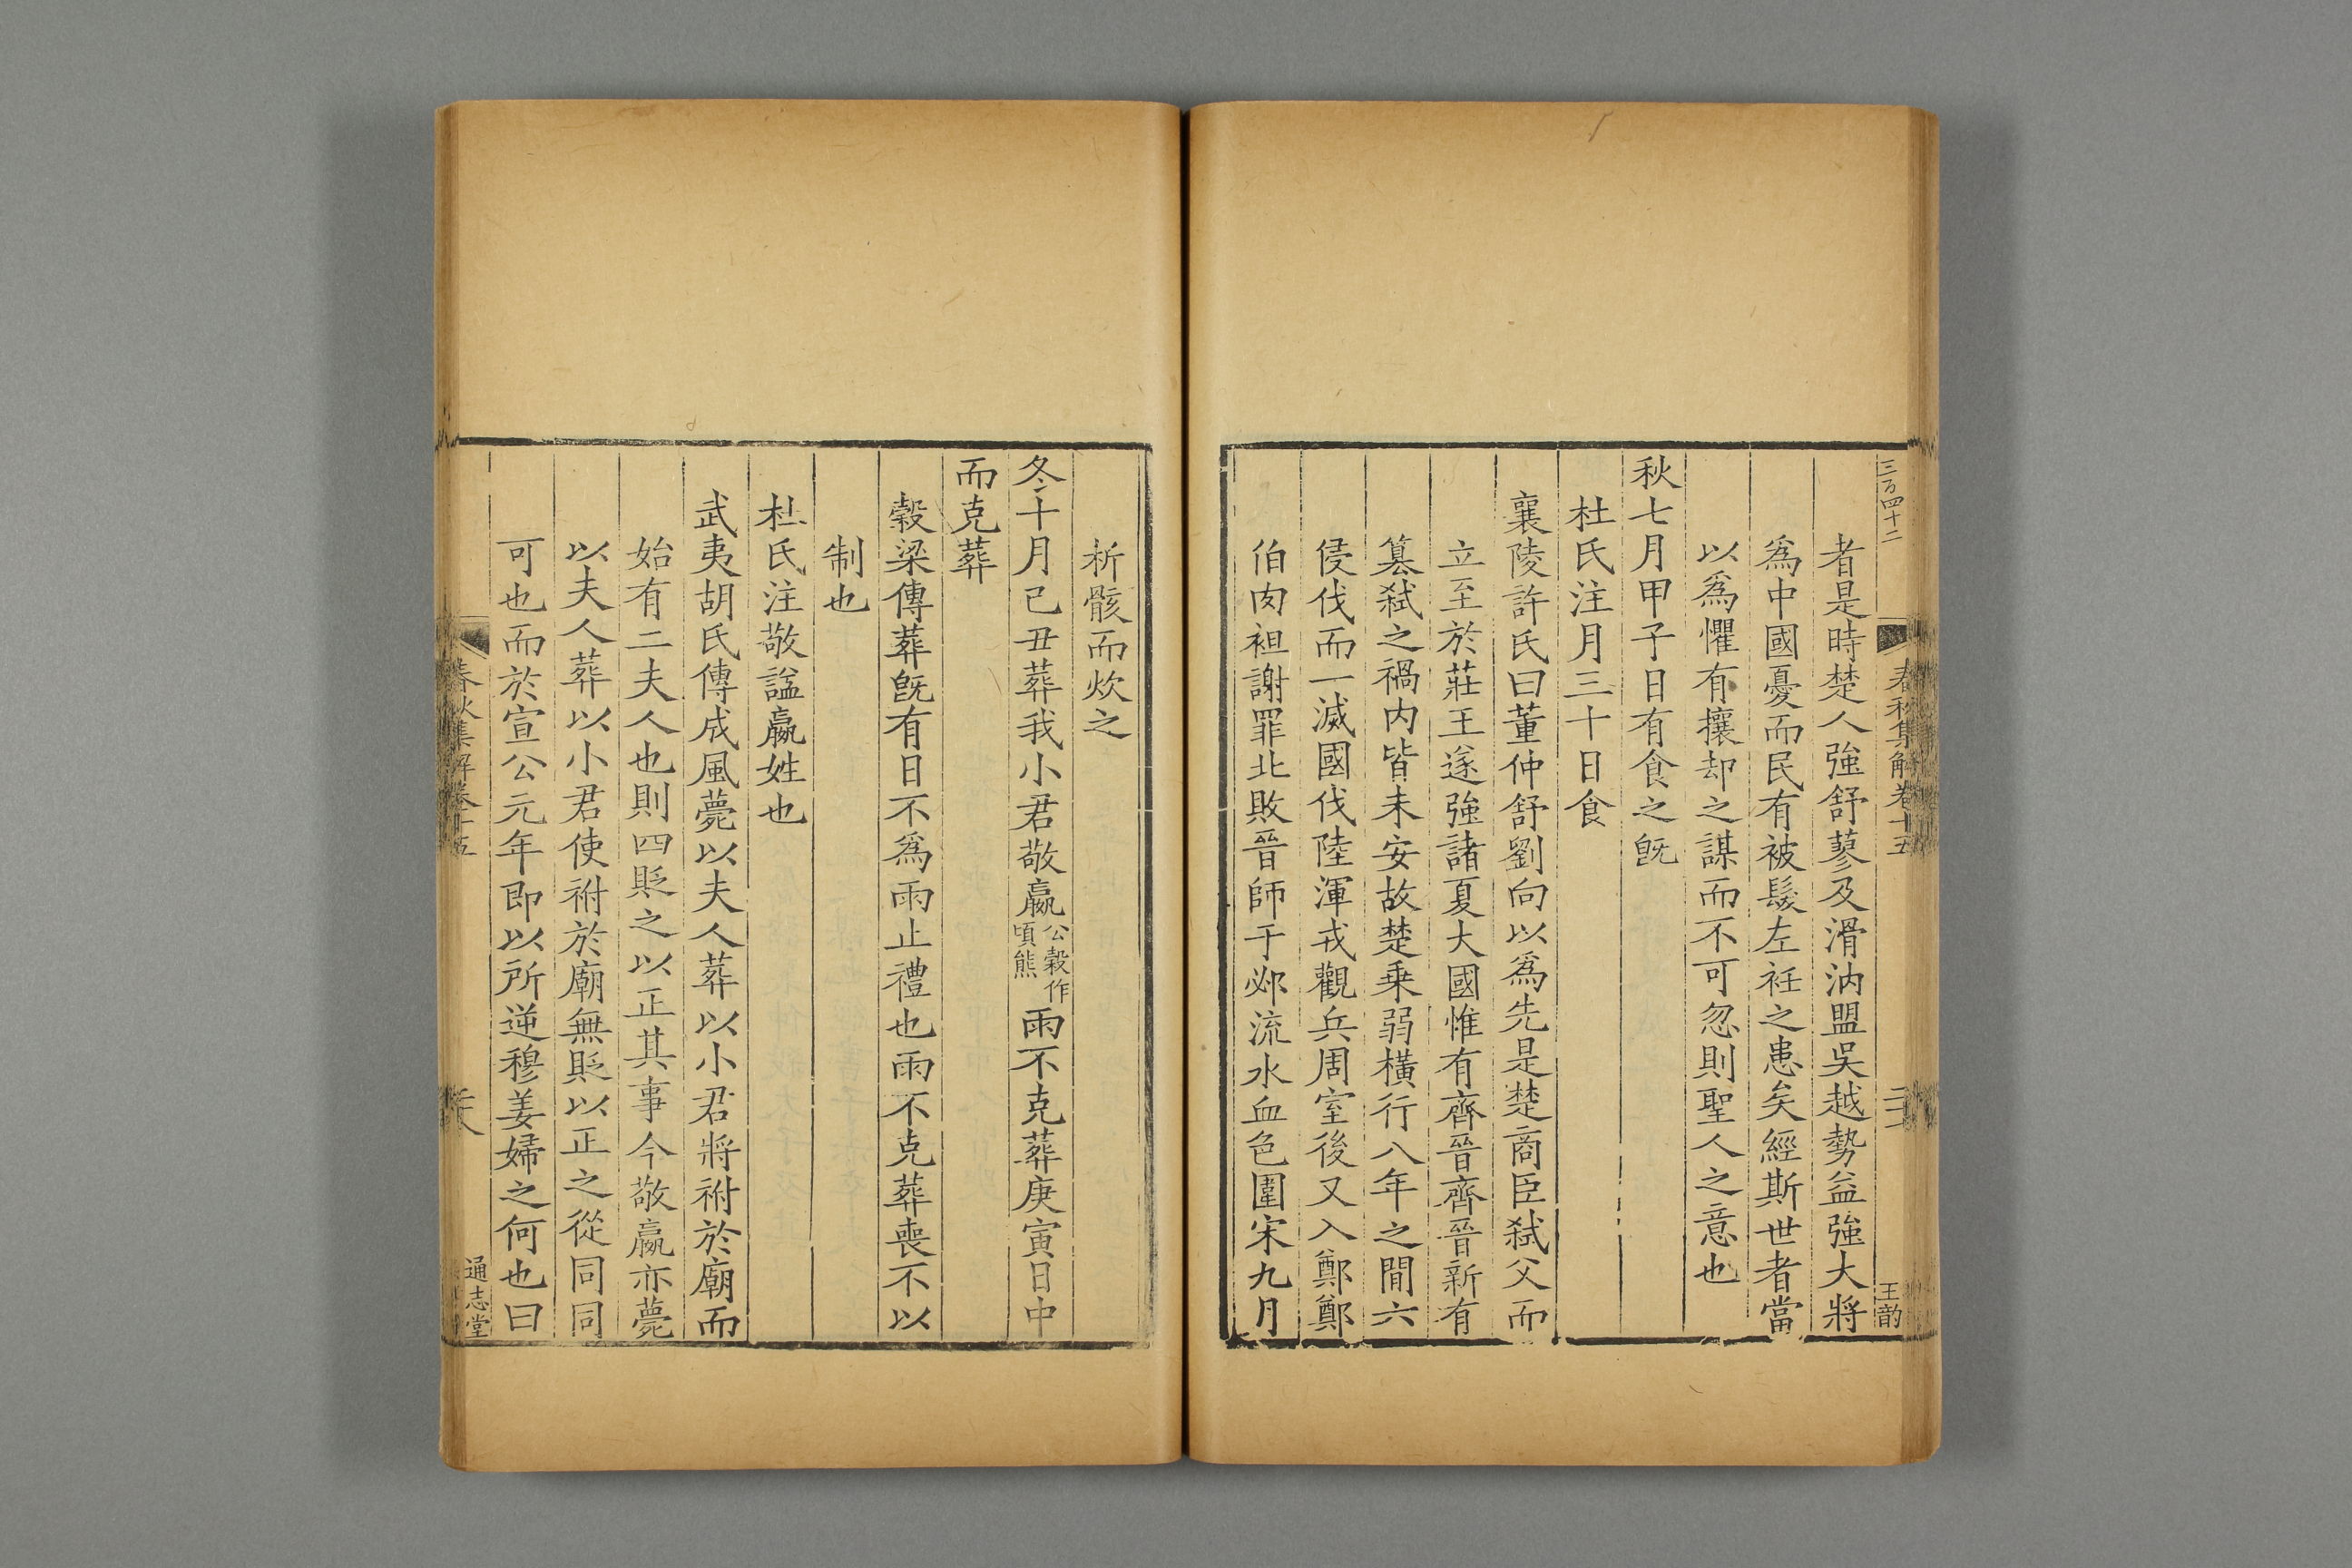 三百四十二
春秋集解卷十五
王韵
者是時楚人強舒蓼及滑汭盟吳越勢益強大將
爲中國憂而民有被髮左衽之患矣經斯世者當
以爲懼有攘却之謀而不可忽則聖人之意也
秋七月甲子日有食之旣
杜氏注月三十日食
襄陵許氏曰董仲舒劉向以爲先是楚商臣弑父而
立至於莊王遂強諸夏大國惟有齊晉齊晉新有
篡弑之禍內皆未安故楚乗弱橫行八年之間六
侵伐而一滅國伐陸渾戎觀兵周室後又入鄭鄭
伯肉袒謝罪北敗晉師于邲流水血色圍宋九月
析骸而炊之
冬十月己丑葬我小君敬嬴公穀作頃熊雨不克葬庚寅日中
而克葬
穀梁傳葬旣有日不爲雨止禮也雨不克葬喪不以
制也
杜氏注敬諡嬴姓也
武夷胡氏傳成風薨以夫人葬以小君將祔於廟而
始有二夫人也則四貶之以正其事今敬嬴亦薨
以夫人葬以小君使祔於廟無貶以正之從同同
可也而於宣公元年即以所逆穆姜婦之何也曰
春秋集解卷十五
通志堂